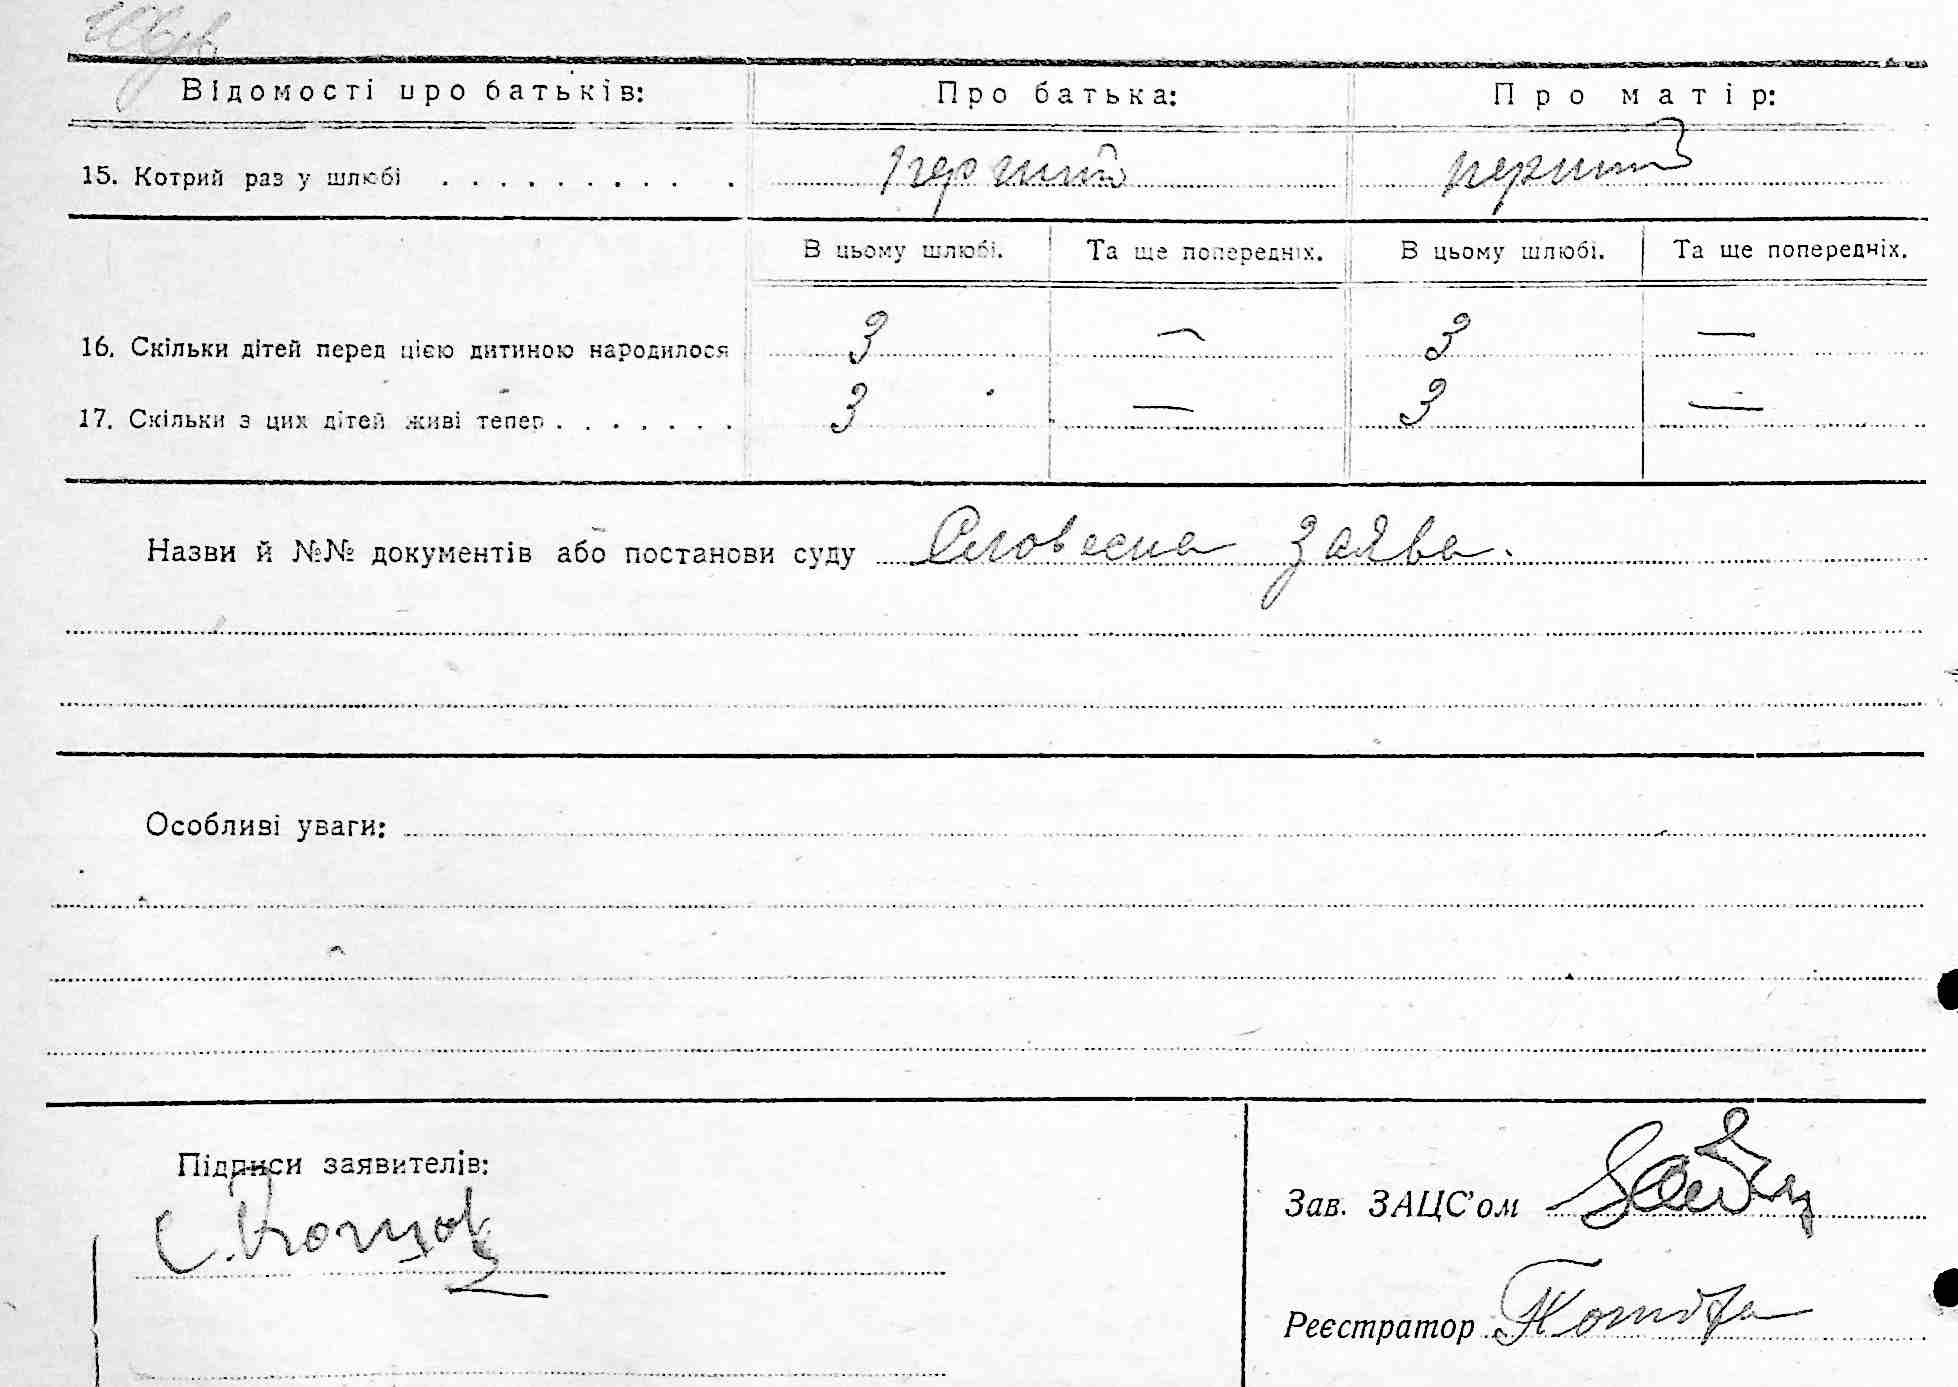 Відомості про батьків: Про батька: Про матір:
15. Котрий раз у шлюбі . . . . . . . . . . перший перший
В цьому шлюбі. Та ще попередніх. В цьому шлюбі. Та ще попередніх.
16. Скільки дітей перед цією дитиною народилося 3 — 3 —
17. Скільки з цих дітей живі тепер . . . . . . . 3 — 3 —
Назви й №№ документів або постанови суду Словесна заява.
Особливі уваги:
Підписи заявителів:
Зав. ЗАЦС'ом
Реєстратор